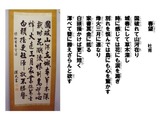 春望
杜甫
国破れて山河在り
城春にして草木深し
時に感じては花にも涙を濺ぎ
別れを恨んでは鳥にも心を驚かす
烽火三月に連なり
家書萬金に抵る
白頭掻けば更に短く
渾べて簪に勝えざらんと欲す
國破山河在城春草木深
感時花濺淚恨別鳥驚心
烽火連三月家書抵萬金
白頭搔更短渾欲不勝簪